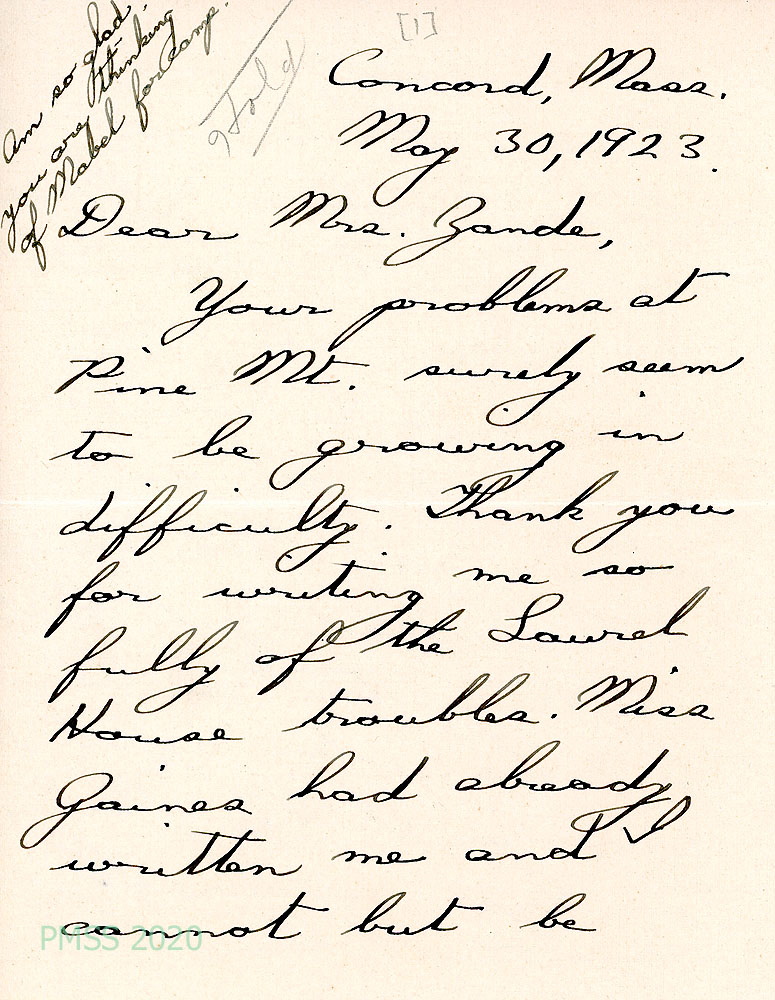 [1]
Am so glad
you are thinking
of Mabel for camp.
Concord, Mass.
May 30, 1923.
Dear Mrs. Zande,
Your problems at
Pine Mt. surely seem
to be growing in
difficulty. Thank you
for writing me so
fully of the Laurel
House troubles. Miss
Gaines had already
written me and I
cannot but be
PMSS 2020